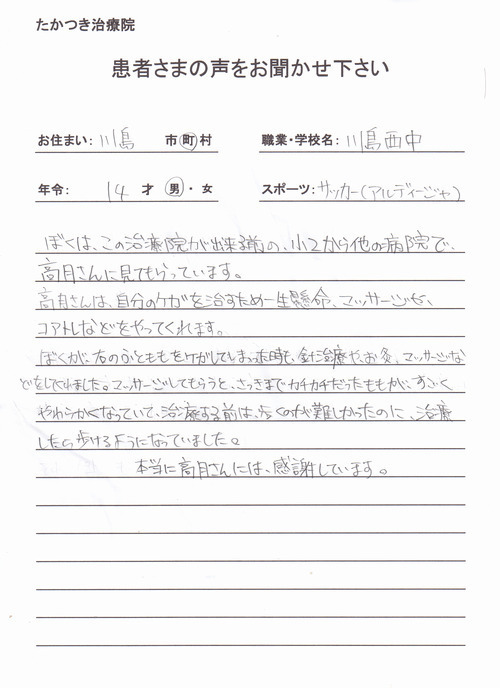 たかつき治療院
患者さまの声をお聞かせ下さい
お住まい: 川島 市町村 職業・学校名: 川島西中
年令: 14 才 男・女 スポーツ: サッカー(アルディージャ)
ぼくは、この治療院が出来る前の、小2から他の病院で、
高月さんに見てもらっています。
高月さんは、自分のケガを治すため一生懸命、マッサージや、
コアトレなどをやってくれます。
ぼくが、右のふとももをケガしてしまった時も、針治療や、お灸、マッサージな
どをしてくれました。マッサージしてもらうと、さっきまでカチカチだったももが、すごく
やわらかくなっていて、治療する前は、歩くのが難しかったのに、治療
したら歩けるようになっていました。
本当に高月さんには、感謝しています。